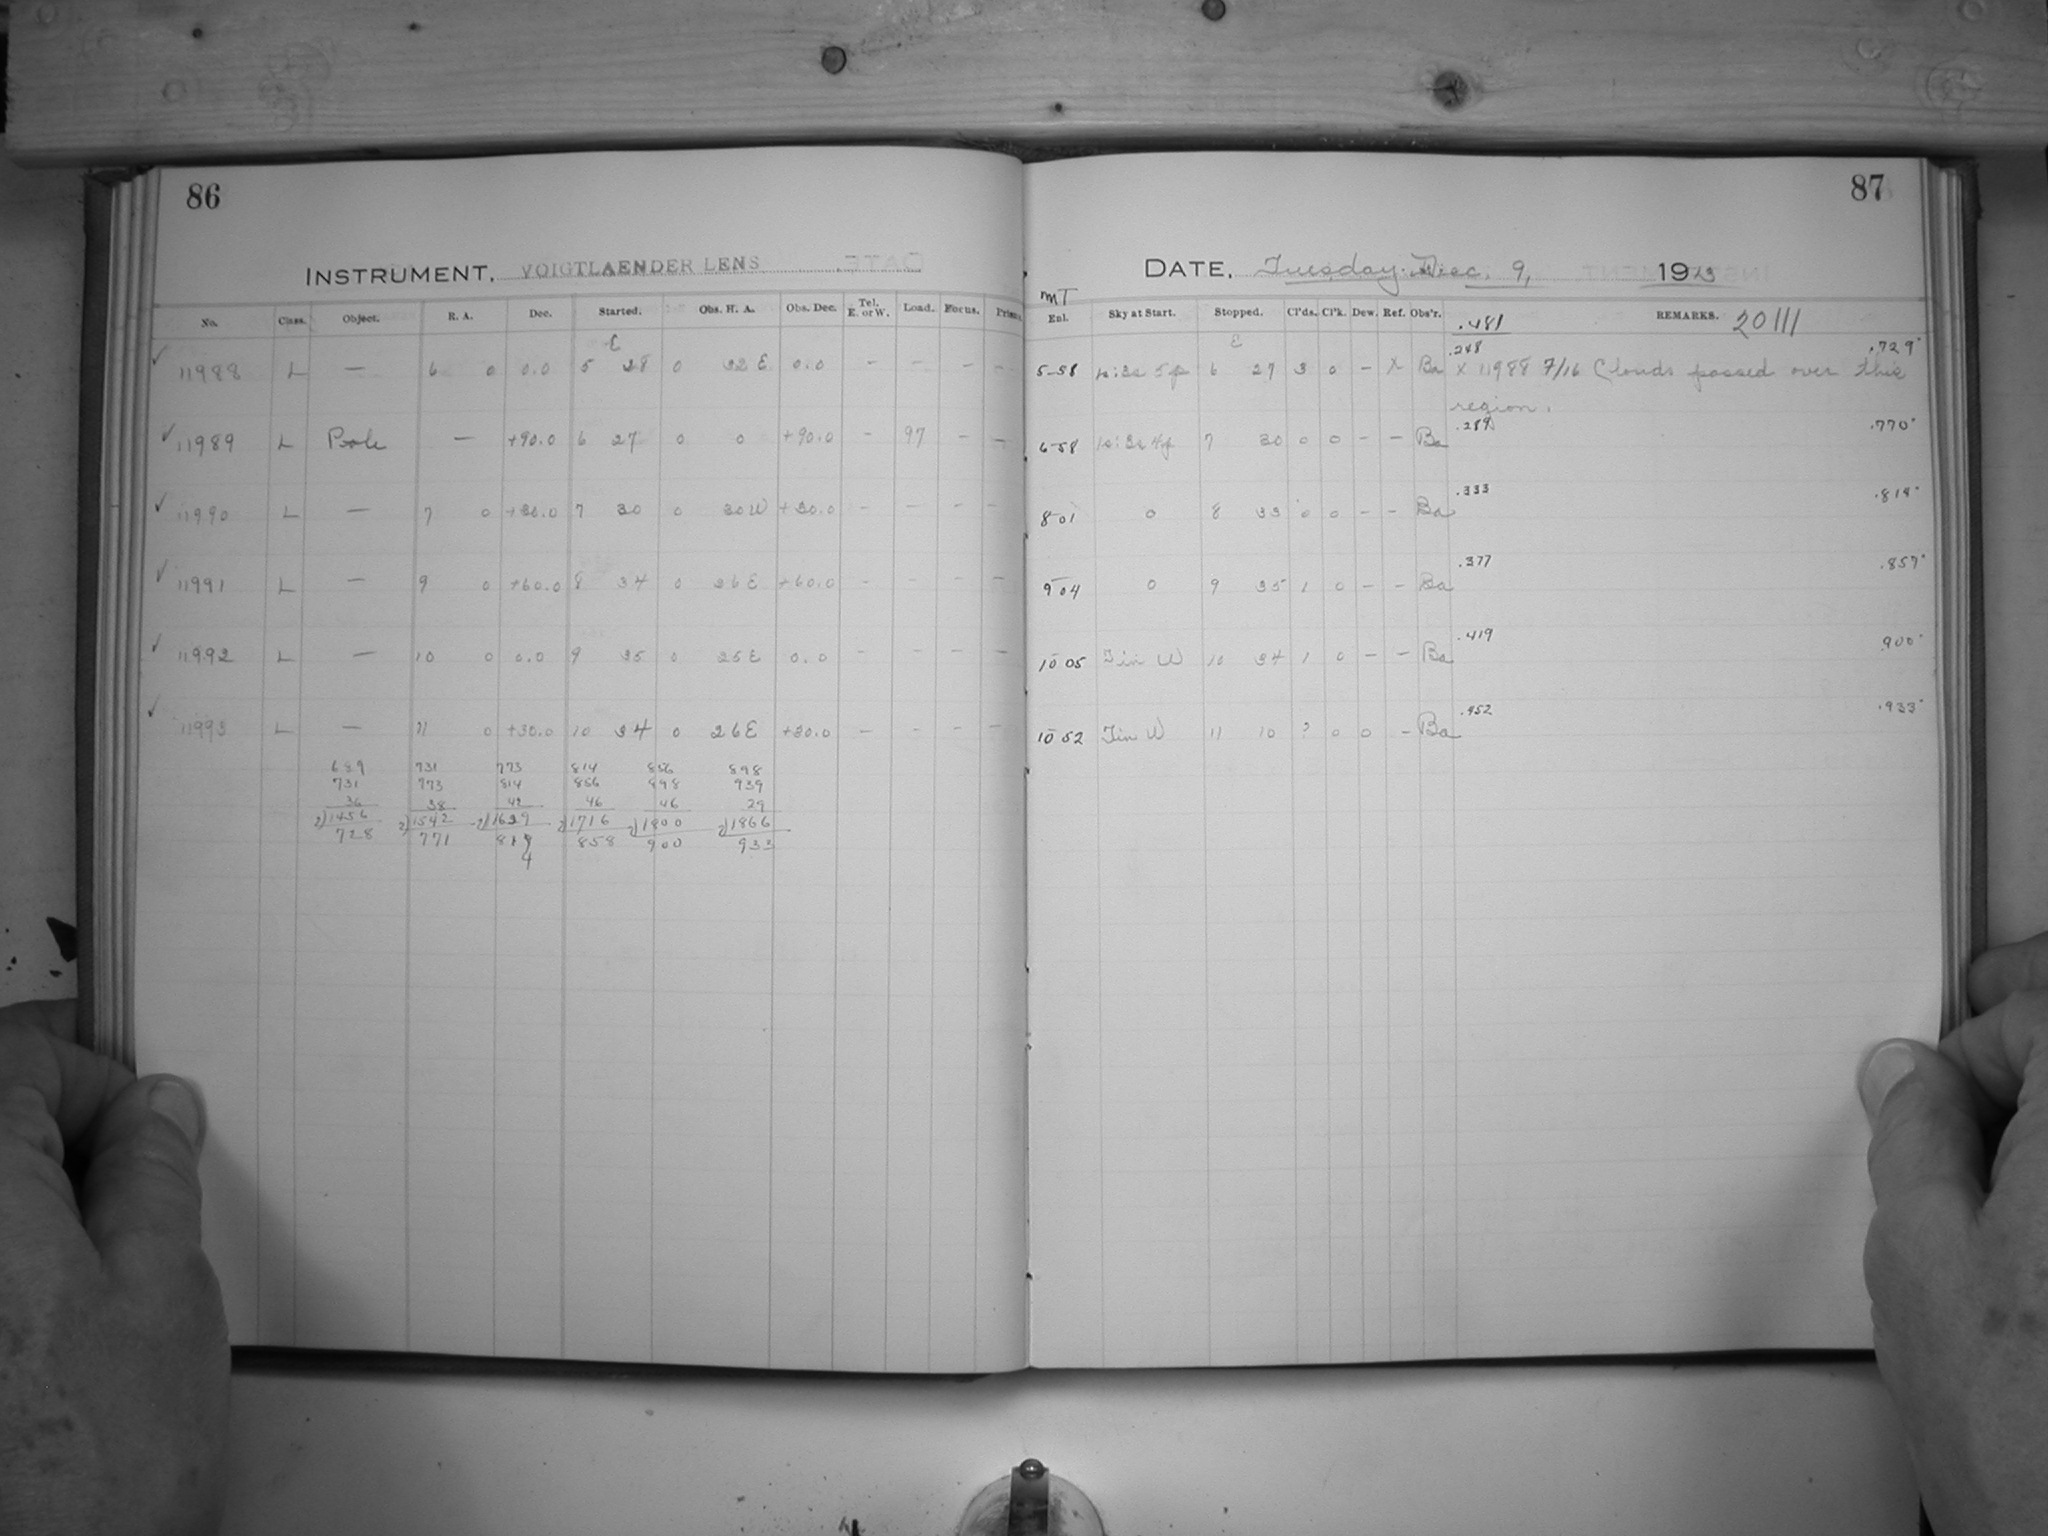 86
INSTRUMENT, VOIGTLAENDER LENS
No. Class. Object. R. A. Dec. Started. Obs. H. A. Obs. Dec. Tel. E. or W. Load. Focus. Prism.
E
11988 L — 6 0 0.0 5 28 0 32 E 0.0 — — — —
11989 L Pole — +90.0 6 27 0 0 +90.0 — 97 — —
11990 L — 7 0 +30.0 7 30 0 30 W +30.0 — — — —
11991 L — 9 0 +60.0 8 34 0 26 E +60.0 — — — —
11992 L — 10 0 0.0 9 35 0 25 E 0.0 — — — —
11993 L — 11 0 +30.0 10 34 0 26 E +30.0 — — — —
689 731 773 814 856 898
731 773 814 856 898 939
36 38 42 46 46 29
2)1456 2)1542 2)1629 2)1716 2)1800 2)1866
728 771 819 858 900 933
4
87
DATE, Tuesday, Dec. 9, 19
mT
Enl. Sky at Start. Stopped. Cl'ds. Cl'k. Dew. Ref. Obs'r. REMARKS. 20111
.481
E
.248 .729
5 58 6 27 3 0 — x Ba x 11988 7/16 Clouds passed over this
region.
.289 .770
6 58 7 30 0 0 — — Ba
.333 .814
8 01 0 8 33 0 0 — — Ba
.377 .857
9 04 0 9 35 1 0 — — Ba
.419 .900
10 05 Tin W 10 34 1 0 — — Ba
.452 .933
10 52 Tin W 11 10 ? 0 0 — Ba